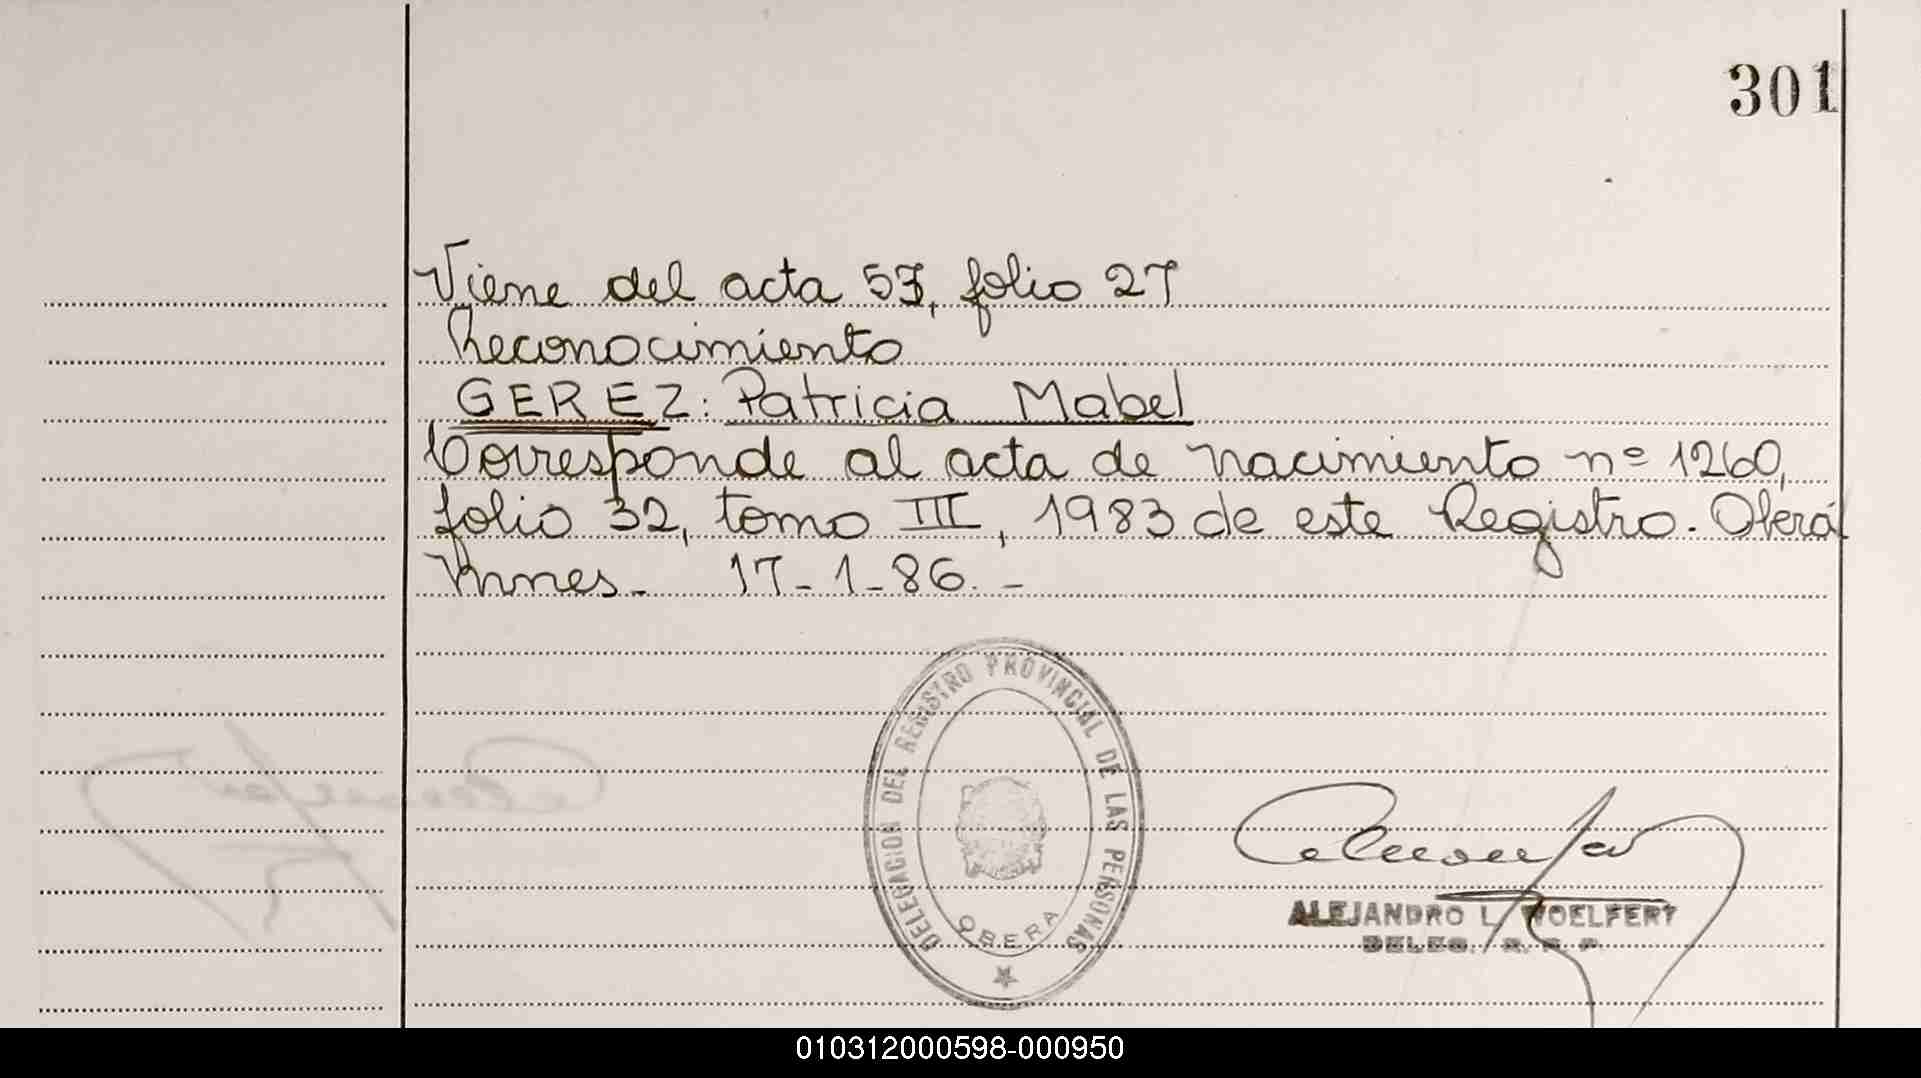 301
Viene del acta 53, folio 27
Reconocimiento
GEREZ: Patricia Mabel
Corresponde al acta de nacimiento nº 1260,
folio 32, tomo III, 1983 de este Registro. Oberá
Mnes. 17-1-86.-
DELEGACION DEL REGISTRO PROVINCIAL DE LAS PERSONAS
OBERA
ALEJANDRO L. WOELFERT
DELEG. R. P. P.
010312000598-000950